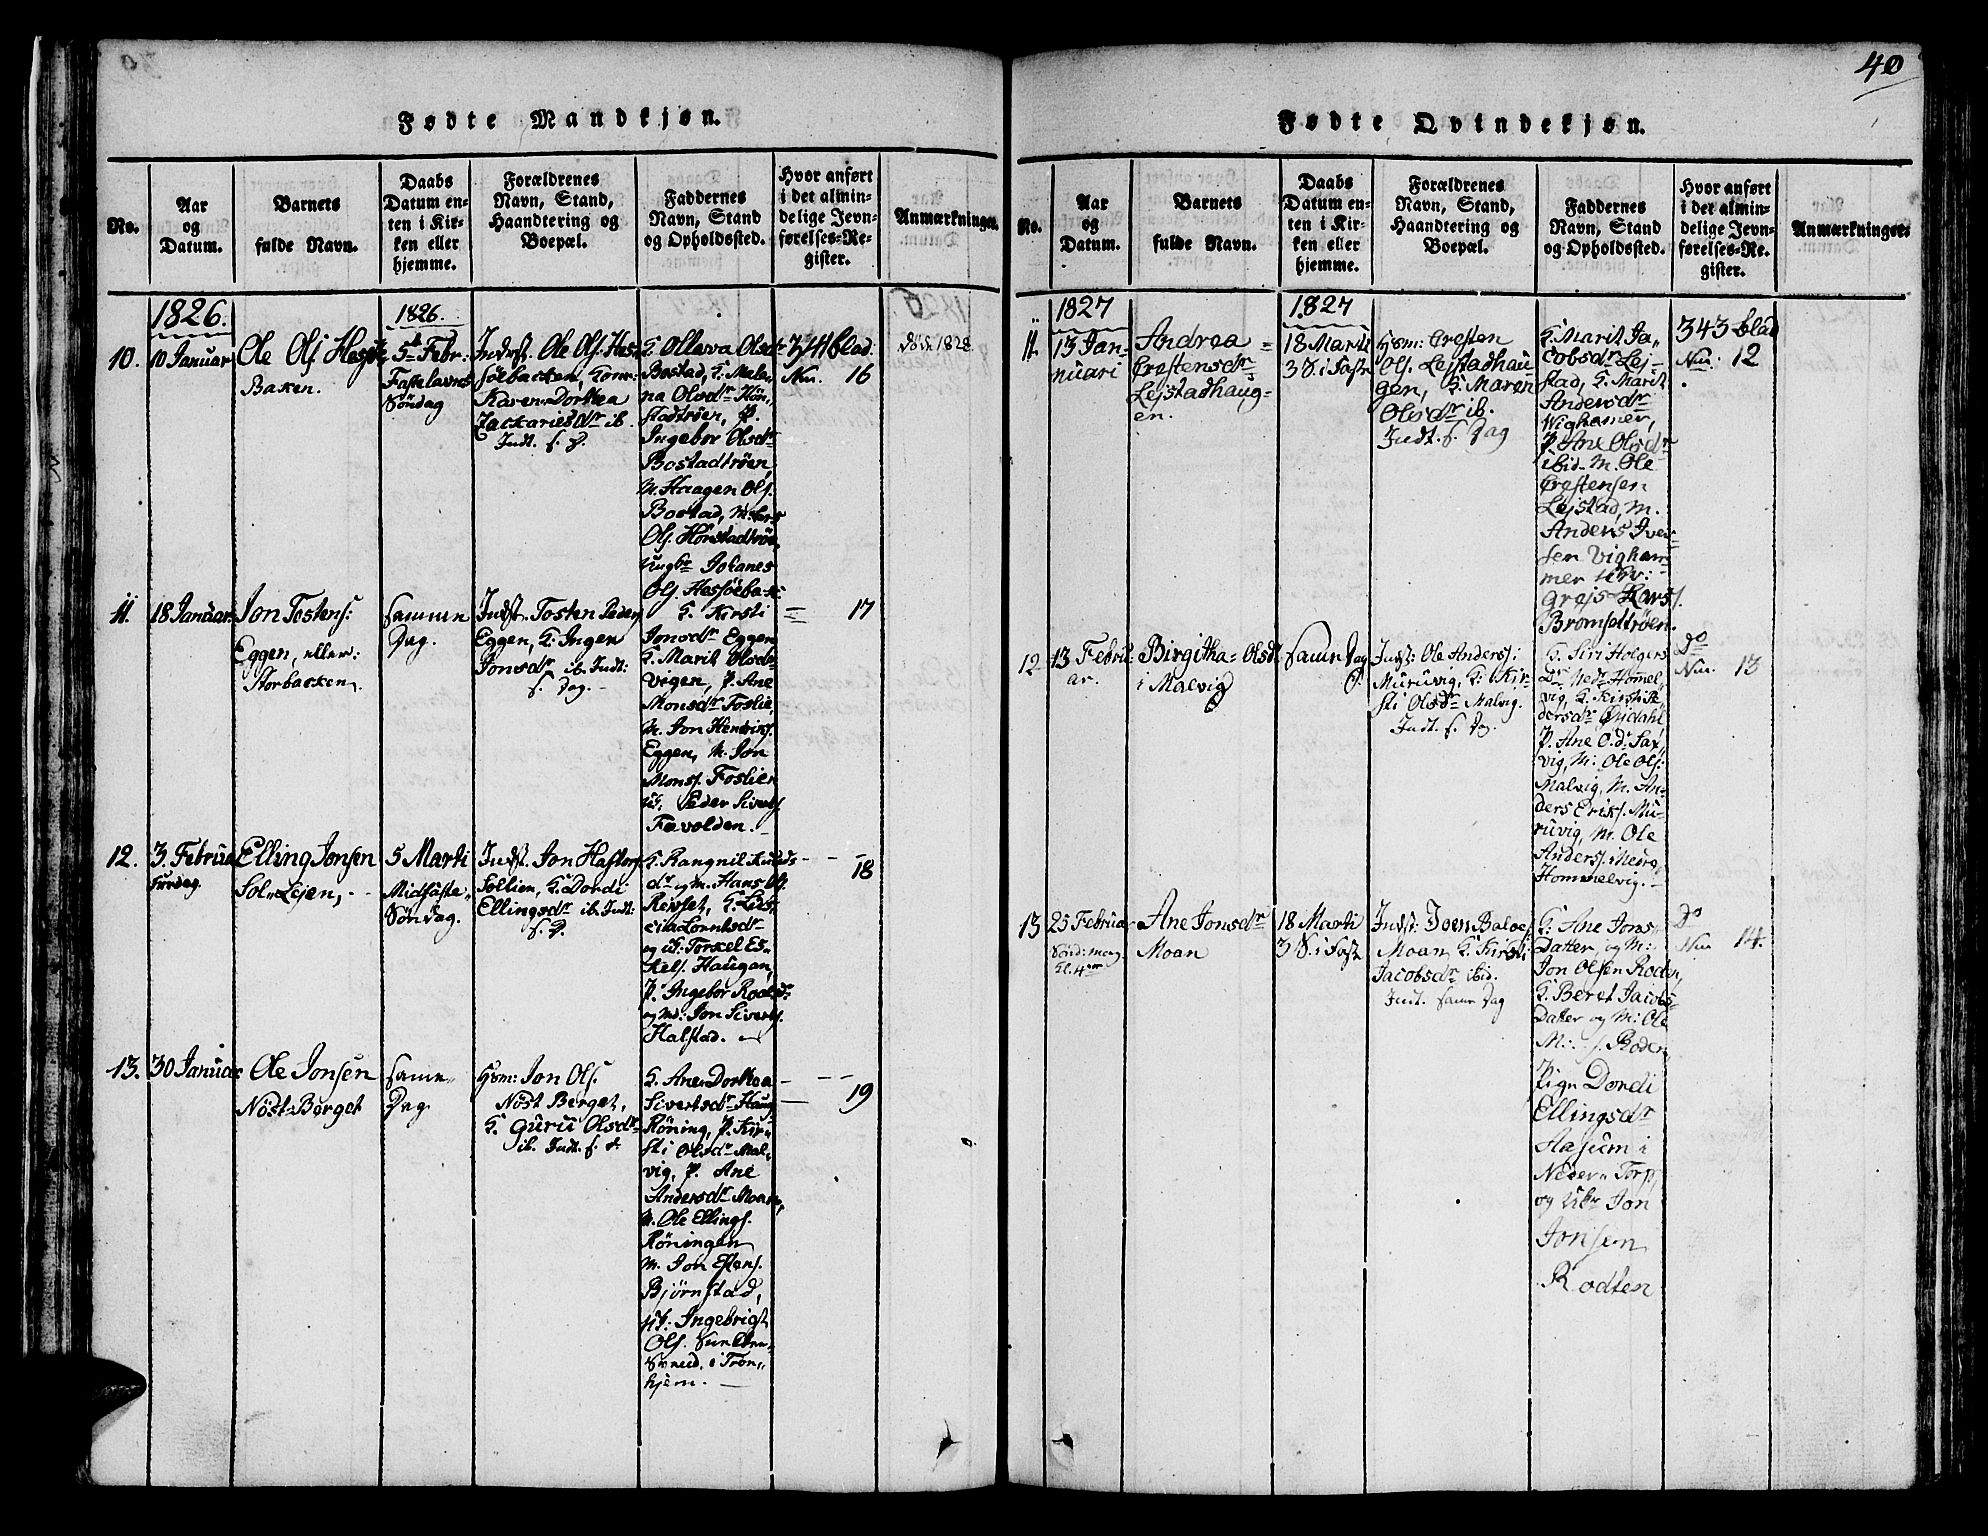 40
Fødte Mandkjøn.
No.
Aar
og
Datum.
Barnets
fulde Navn.
Daabs
Datum en-
ten i Kir-
ken eller
hjemme.
Forældrenes
Navn, Stand,
Haandtering og
Boepæl.
Faddernes
Navn, Stand
og Opholdssted.
Hvor anført
i det almin-
delige Jevn-
førelses-Re-
gister.
Anmærkninger.
1826.
1826.
10.
10 Januar
Ole Ols. Hessøe
Baken.
5te Febr:
Fastelavns
Søndag
Indst. Ole Ols. Hes-
søebacken, Kone
Karen Dorthea
Zackariesdr ib.
Indt. s. D.
K. Ollava Olsdr
Bostad, K. Male-
na Olsdr Høn-
stadtrøen, P.
Ingebor Olsdr
Bostadtrøen,
M. Haagen Ols.
Bostad, M. Lars
Ols. Hønstadtrøe
Ungkr Johanes
Ols. Hessøebak
341 blad.
Nu. 16
11.
18 Januar
Jon Tostens:
Eggen, eller:
Storbacken.
samme
Dag.
Indst. Tosten Peders
Eggen, K. Ingen
Jonsdr ib. Indt:
s. Dag.
K. Kirsti
Jonsdr Eggen
K. Marit Olsdr
Vigen, P. Ane
Monsdr Foslie,
M. Jon Henriks.
Eggen, M. Jon
Mons. Foslien
U. Peder Siverts.
Fævolden.
17
12.
3. Februar
Elling Jonsen
Sol-Lejen,
5 Marti
Midfaste-
Søndag.
Indst. Jon Hafters.
Sollien, K. Dordi
Ellingsdr ib. Indt:
s. D.
K. Rangnil Knuds-
dr og M. Hans Ols.
Revset, K. Lus-
cia Lorntsdr
og U: Torkel Es-
kels. Haugan,
P. Ingebor Roaldsdr
og M: Jon Siverts.
Halstad.
18
13.
30 Januar
Ole Jonsen
Nøst-Berget
samme
Dag
Hsm: Jon Ols.
Nøst Berget,
K. Guru Olsdr
ib. Indt. s. d.
K. Ane Dorthea
Sivertsdr Haug
Røning, P. Kir-
sti Olsdr Mal-
vig, P. Ane
Andersdr Moan,
M. Ole Ellings.
Røningen
M. Jon Estens.
Bjørnstad,
U: Ingebrigt
Ols.
i Tron-
hjem.
19
Fødte Qvindekjøn.
No.
Aar
og
Datum.
Barnets
fulde Navn.
Daabs
Datum en-
ten i Kir-
ken eller
hjemme.
Forældrenes
Navn, Stand,
Haandtering og
Boepæl.
Faddernes
Navn, Stand
og Opholdssted.
Hvor anført
i det almin-
delige Jevn-
førelses-Re-
gister.
Anmærkninger.
1827
1827
11.
13 Jan-
nuari
Andrea
Crestensdr
Lejstadhaug-
en.
18 Marti
3 S. i Fast
Hsm: Cresten
Ols. Lejstadhau-
gen, K. Maren
Olsdr ib.
Indt. s. Dag
K. Marit Ja-
cobsdr Lej-
stad, K. Marit
Andersdr
Wighamer,
P. Ane Olsdr
ibid. M. Ole
Crestensen
Lejstad, M.
Anders Iver-
sen Vigham-
mer
Lars
Bromsettrøen.
343 blad
Nu: 12
12
13 Febru-
ar.
Birgitha Olsdr
i Malvig
samme Dag
Indst: Ole Anders:
Muruvig, K: Kir-
sti Olsdr Malvig.
Indt. s. Dag.
K. Siri Holgers
Dr Nedr Homel-
vig, K. Kirsti Pe-
dersdr Øsidahl
P. Ane O.dr Sax-
vig, M: Ole Ols:
Malvig, M. An-
ders Eriks. Mu-
ruvig, M. Ole
Anders: Nedre
Hommelvig.
Do
Nu. 13
13
25 Februar
Kl. 4
Ane Jonsdr
Moan
18 Marti
3 S. i Fast
Indst: Joen Baloe
Moan, K. Kirsti
Jacobsdr ibid.
Indt. samme Dag
K: Ane Jons
Datter og M:
Jon Olsen Roden,
K. Beret Jacobs-
Datter og M: Ole
Roden
Pige Dordi
Ellingsdr
Hasum i
Neder-Torp
og Ukr Jon
Jonsen
Rodten
Do
Nu 14.